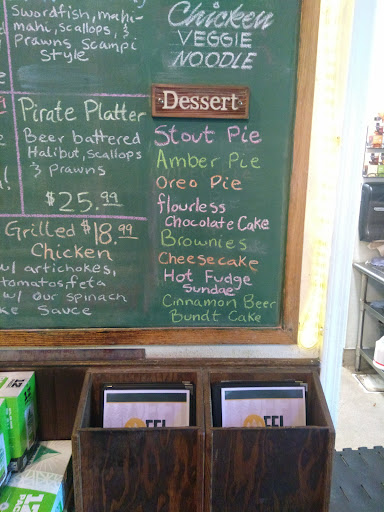 Swordfish, mahi-
mahi, scallops, &
Prawns Scampi
Style
Pirate Platter
Beer battered
Halibut, scallops
& prawns
$25.99
Grilled $18.99
Chicken
w/ artichokes,
tomatoes, feta
w/ our spinach
sauce
Chicken
VEGGIE
NOODLE
Dessert
Stout Pie
Amber Pie
Oreo Pie
flourless
Chocolate Cake
Brownies
Cheesecake
Hot Fudge
Sundae
Cinnamon Beer
Bundt Cake